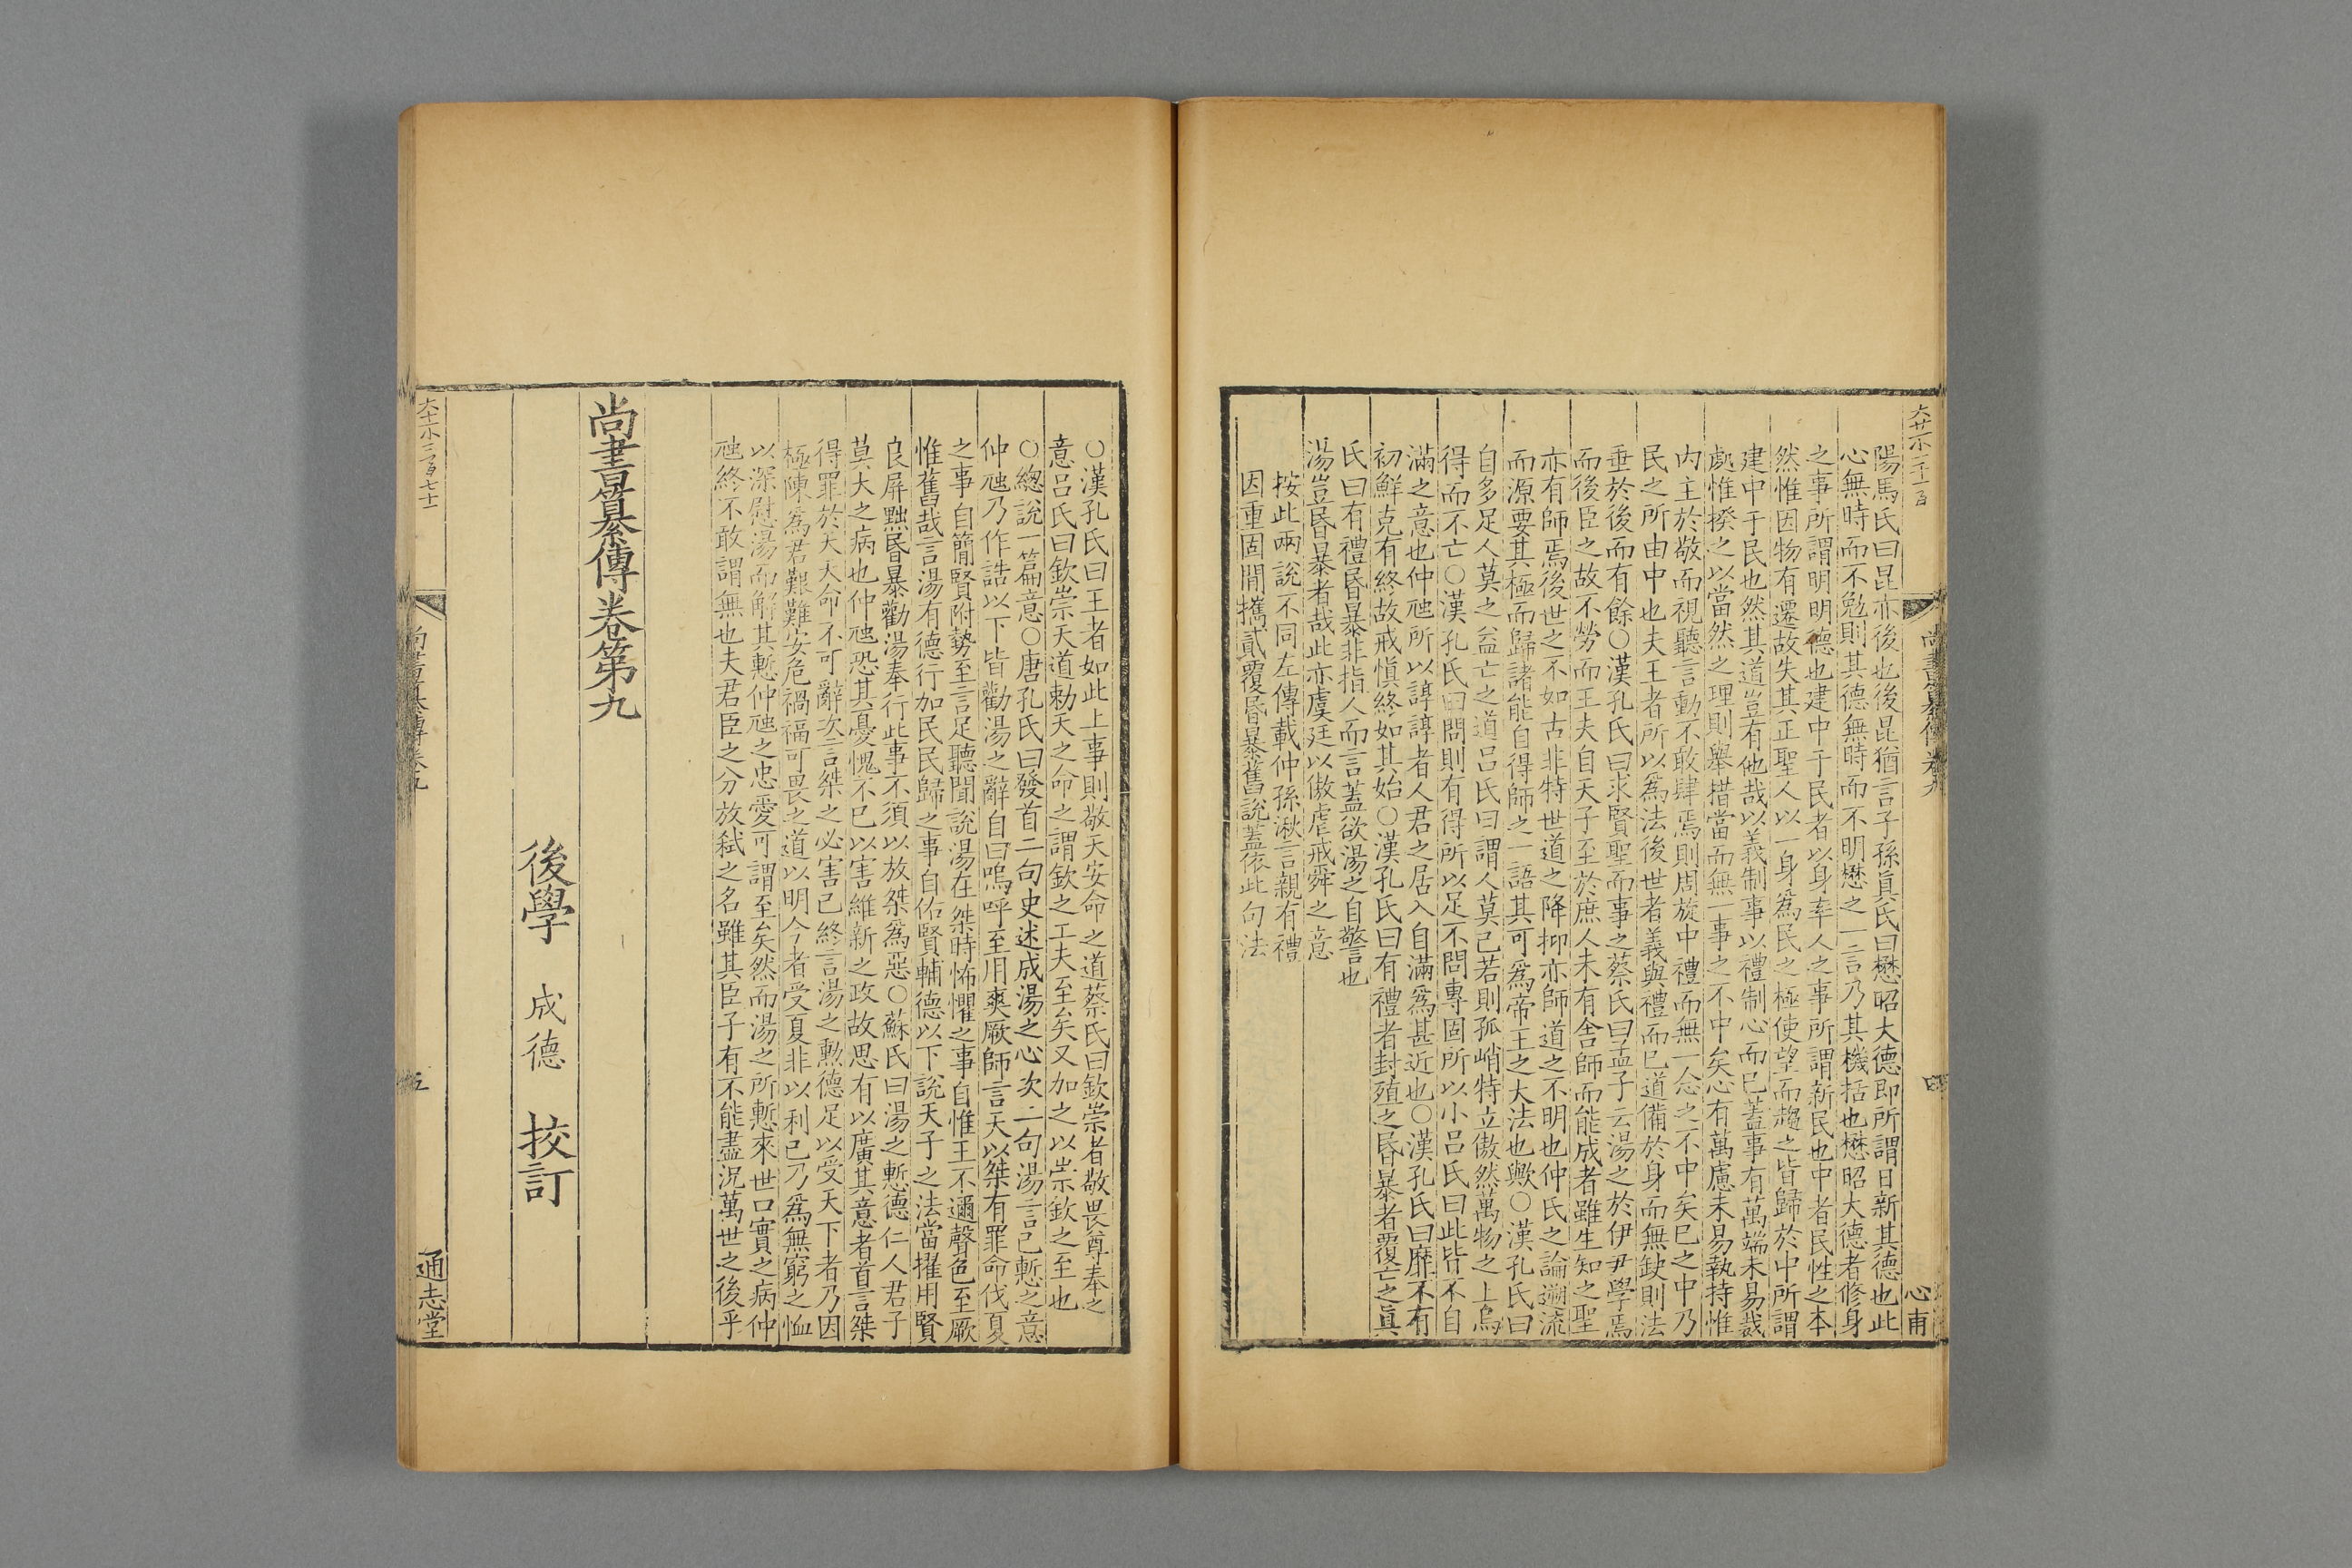 陽馬氏曰昆亦後也後昆猶言子孫眞氏曰懋昭大德即所謂日新其德也此
心無時而不勉則其德無時而不明懋之一言乃其機括也懋昭大德者修身
之事所謂明明德也建中于民者以身率人之事所謂新民也中者民性之本
然惟因物有遷故失其正聖人以一身爲民之極使望而趨之皆歸於中所謂
建中于民也然其道豈有他哉以義制事以禮制心而已蓋事有萬端未易裁
處惟揆之以當然之理則舉措當而無一事之不中矣心有萬慮未易執持惟
内主於敬而視聽言動不敢肆焉則周旋中禮而無一念之不中矣已之中乃
民之所由中也夫王者所以爲法後世者義與禮而已道備於身而無缺則法
垂於後而有餘○漢孔氏曰求賢聖而事之蔡氏曰孟子云湯之於伊尹學焉
而後臣之故不勞而王夫自天子至於庶人未有舍師而能成者雖生知之聖
亦有師焉後世之不如古非特世道之降抑亦師道之不明也仲氏之論遡流
而源要其極而歸諸能自得師之一語其可爲帝王之大法也歟○漢孔氏曰
自多足人莫之益亡之道呂氏曰謂人莫己若則孤峭特立傲然萬物之上烏
得而不亡○漢孔氏曰問則有得所以足不問專固所以小呂氏曰此皆不自
滿之意也仲虺所以諄諄者人君之居入自滿爲甚近也○漢孔氏曰靡不有
初鮮克有終故戒愼終如其始○漢孔氏曰有禮者封殖之昬暴者覆亡之眞
氏曰有禮昬暴非指人而言蓋欲湯之自警也
湯豈昬暴者哉此亦虞廷以傲虐戒舜之意
按此兩說不同左傳載仲孫湫言親有禮
因重固閒攜貳覆昬暴舊說蓋依此句法
大廿一小二千二百
尚書纂傳卷九
四
心甫
○漢孔氏曰王者如此上事則敬天安命之道蔡氏曰欽崇者敬畏尊奉之
意呂氏曰欽崇天道勅天之命之謂欽之工夫至矣又加之以崇欽之至也
○總說一篇意○唐孔氏曰發首二句史述成湯之心次二句湯言己慙之意
仲虺乃作誥以下皆勸湯之辭自曰嗚呼至用爽厥師言天以桀有罪命伐夏
之事自簡賢附勢至言足聽聞說湯在桀時怖懼之事自惟王不邇聲色至厥
惟舊哉言湯有德行加民民歸之事自佑賢輔德以下說天子之法當擢用賢
良屏黜昬暴勸湯奉行此事不須以放桀爲惡○蘇氏曰湯之慙德仁人君子
莫大之病也仲虺恐其憂愧不已以害維新之政故思有以廣其意者首言桀
得罪於天天命不可辭次言桀之必害己終言湯之勲德足以受天下者乃因
極陳爲君艱難安危禍福可畏之道以明今者受夏非以利己乃爲無窮之恤
以深慰湯而解其慙仲虺之忠愛可謂至矣然而湯之所慙來世口實之病仲
虺終不敢謂無也夫君臣之分放弑之名雖其臣子有不能盡況萬世之後乎
尚書纂傳卷第九
後學 成德 挍訂
大十一小三百七十一
尚書纂傳卷九
五
通志堂